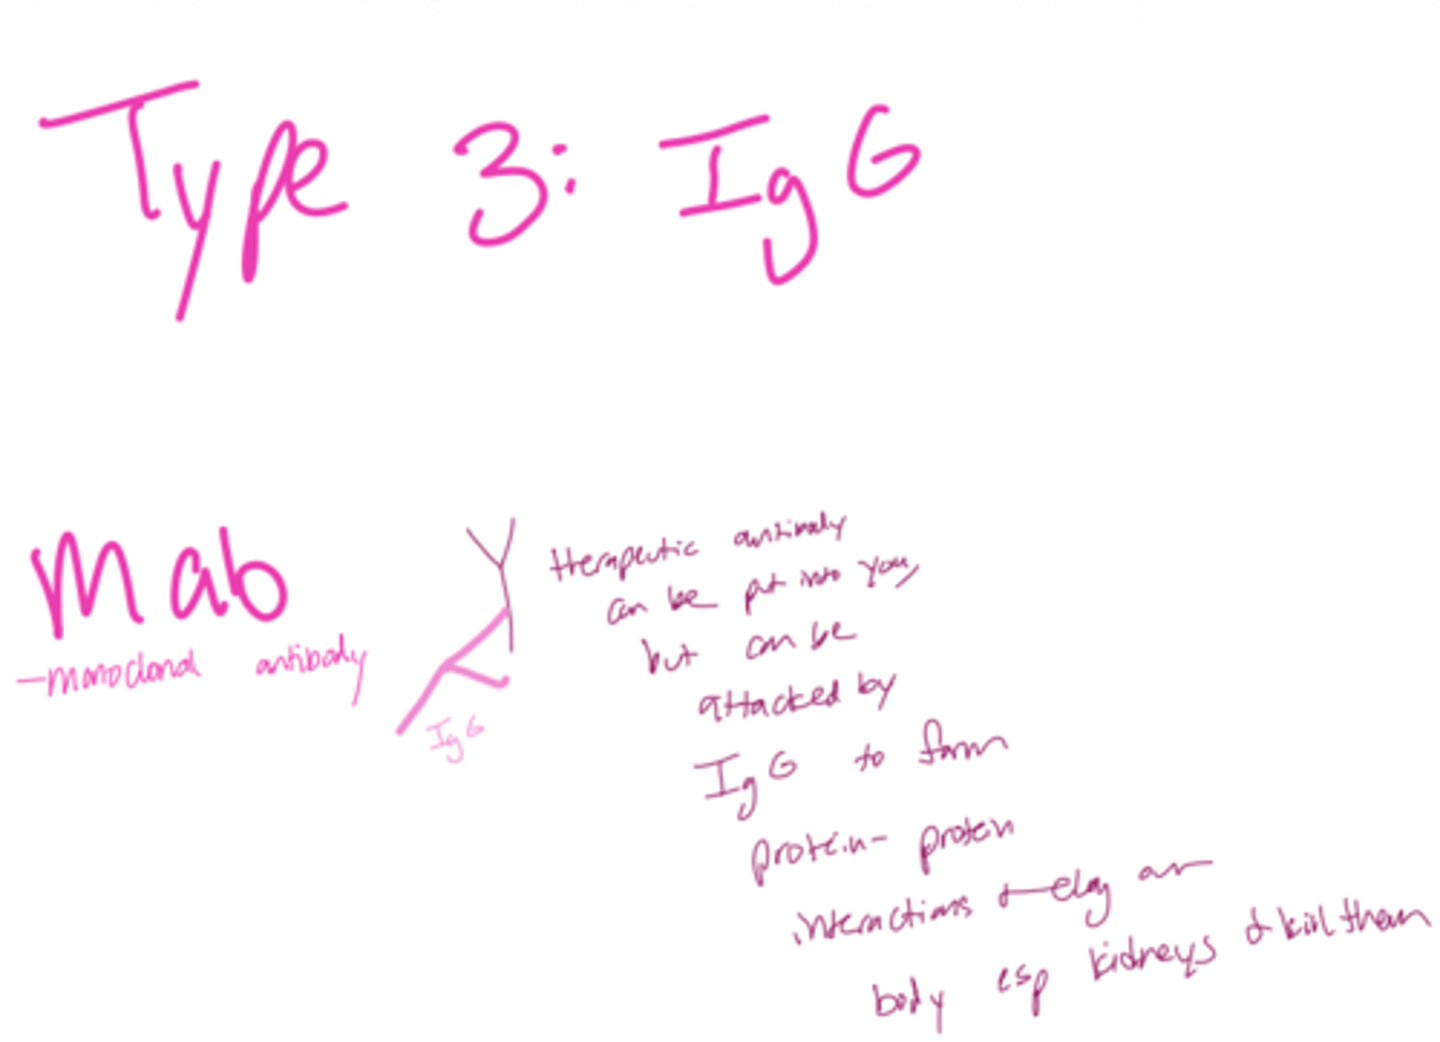 Type 3: IgG
Mab
-monoclonal antibody
IgG
therapeutic antibody
can be put into you,
but can be
attacked by
IgG to form
protein-protein
interactions & clog our
body esp kidneys & kill them